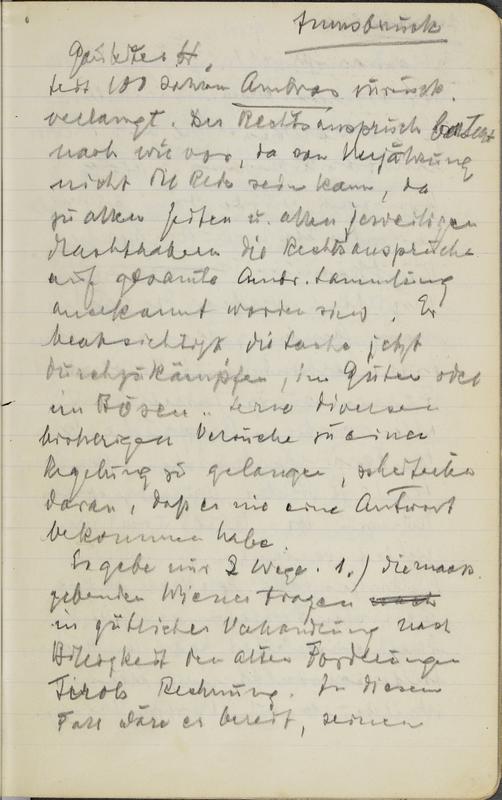 Innsbruck
Gauleiter H.
seit 100 Jahren Ambras zurück
verlangt. Der Rechtsanspruch besteht
nach wie vor, da von Verjährung
nicht die Rede sein kann, da
zu allen Zeiten u. allen jeweiligen
Machthabern die Rechtsansprüche
auf gesamte Ambr. Sammlung
anerkannt worden sind. Er
beabsichtigt die Sache jetzt
durchzukämpfen, im Guten oder
im Bösen. Seine diversen
bisherigen Versuche zu einer
Regelung zu gelangen, scheiterten
daran, daß er nie eine Antwort
bekommen habe.
Es gebe nur 2 Wege. 1.) die maas
gebenden Wiener tragen
in gütlicher Verhandlung nach
Billigkeit den alten Forderungen
Tirols Rechnung. In diesem
Fall wäre er bereit, seinen